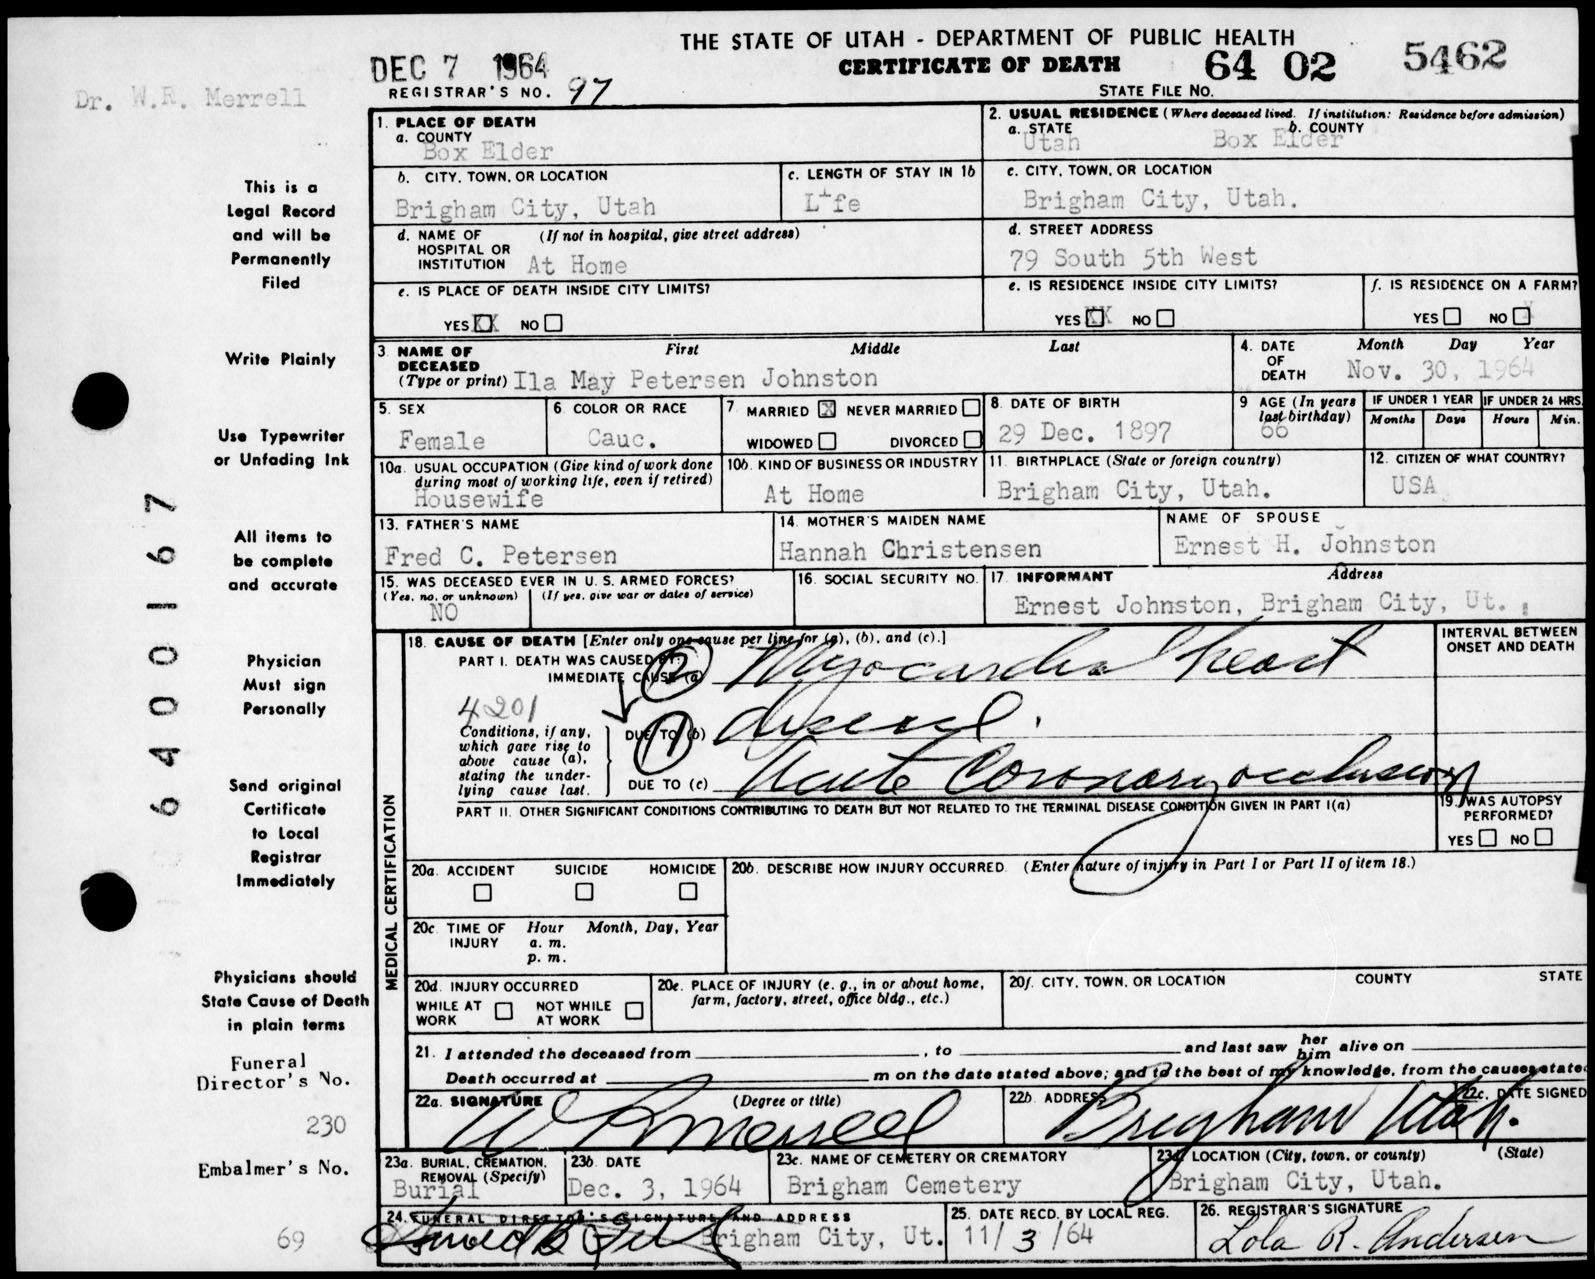 THE STATE OF UTAH - DEPARTMENT OF PUBLIC HEALTH
CERTIFICATE OF DEATH
64 02 5462
STATE FILE NO.
DEC 7 1964
REGISTRAR'S NO. 97
Dr. W.R. Merrell
This is a
Legal Record
and will be
Permanently
Filed
Write Plainly
Use Typewriter
or Unfading Ink
All items to
be complete
and accurate
Physician
Must sign
Personally
Send original
Certificate
to Local
Registrar
Immediately
Physicians should
State Cause of Death
in plain terms
Funeral
Director's No.
230
Embalmer's No.
69
6400167
1. PLACE OF DEATH
a. COUNTY
Box Elder
2. USUAL RESIDENCE (Where deceased lived. If institution: Residence before admission)
a. STATE b. COUNTY
Utah Box Elder
b. CITY, TOWN, OR LOCATION
Brigham City, Utah
c. LENGTH OF STAY IN 1b
Life
c. CITY, TOWN, OR LOCATION
Brigham City, Utah.
d. NAME OF (If not in hospital, give street address)
HOSPITAL OR
INSTITUTION At Home
d. STREET ADDRESS
79 South 5th West
e. IS PLACE OF DEATH INSIDE CITY LIMITS?
YES XX NO
e. IS RESIDENCE INSIDE CITY LIMITS?
YES XX NO
f. IS RESIDENCE ON A FARM?
YES NO X
3. NAME OF First Middle Last
DECEASED
(Type or print) Ila May Petersen Johnston
4. DATE Month Day Year
OF
DEATH Nov. 30, 1964
5. SEX
Female
6. COLOR OR RACE
Cauc.
7. MARRIED X NEVER MARRIED
WIDOWED DIVORCED
8. DATE OF BIRTH
29 Dec. 1897
9 AGE (In years
last birthday)
66
IF UNDER 1 YEAR IF UNDER 24 HRS.
Months Days Hours Min.
10a. USUAL OCCUPATION (Give kind of work done
during most of working life, even if retired)
Housewife
10b. KIND OF BUSINESS OR INDUSTRY
At Home
11. BIRTHPLACE (State or foreign country)
Brigham City, Utah.
12. CITIZEN OF WHAT COUNTRY?
USA
13. FATHER'S NAME
Fred C. Petersen
14. MOTHER'S MAIDEN NAME
Hannah Christensen
NAME OF SPOUSE
Ernest H. Johnston
15. WAS DECEASED EVER IN U. S. ARMED FORCES?
(Yes, no, or unknown) (If yes, give war or dates of service)
NO
16. SOCIAL SECURITY NO.
17. INFORMANT Address
Ernest Johnston, Brigham City, Ut.
MEDICAL CERTIFICATION
18. CAUSE OF DEATH [Enter only one cause per line for (a), (b), and (c).]
INTERVAL BETWEEN
ONSET AND DEATH
PART I. DEATH WAS CAUSED BY:
IMMEDIATE CAUSE (a) 2 Myocardia heart
4201
Conditions, if any,
which gave rise to
above cause (a),
stating the under-
lying cause last.
DUE TO (b) 1 disease.
DUE TO (c) Acute Coronary occlusion
PART II. OTHER SIGNIFICANT CONDITIONS CONTRIBUTING TO DEATH BUT NOT RELATED TO THE TERMINAL DISEASE CONDITION GIVEN IN PART I(a)
19. WAS AUTOPSY
PERFORMED?
YES NO
20a. ACCIDENT SUICIDE HOMICIDE
20b. DESCRIBE HOW INJURY OCCURRED. (Enter nature of injury in Part I or Part II of item 18.)
20c. TIME OF Hour Month, Day, Year
INJURY a. m.
p. m.
20d. INJURY OCCURRED
WHILE AT NOT WHILE
WORK AT WORK
20e. PLACE OF INJURY (e. g., in or about home,
farm, factory, street, office bldg., etc.)
20f. CITY, TOWN, OR LOCATION COUNTY STATE
21. I attended the deceased from , to and last saw her him alive on
Death occurred at m on the date stated above; and to the best of my knowledge, from the causes state
22a. SIGNATURE (Degree or title)
W R Merrell
22b. ADDRESS
Brigham Utah.
22c. DATE SIGNED
23a. BURIAL, CREMATION,
REMOVAL (Specify)
Burial
23b. DATE
Dec. 3, 1964
23c. NAME OF CEMETERY OR CREMATORY
Brigham Cemetery
23d. LOCATION (City, town, or county) (State)
Brigham City, Utah.
24. FUNERAL DIRECTOR'S SIGNATURE AND ADDRESS
Brigham City, Ut.
25. DATE RECD. BY LOCAL REG.
11/3/64
26. REGISTRAR'S SIGNATURE
Lola R. Andersen